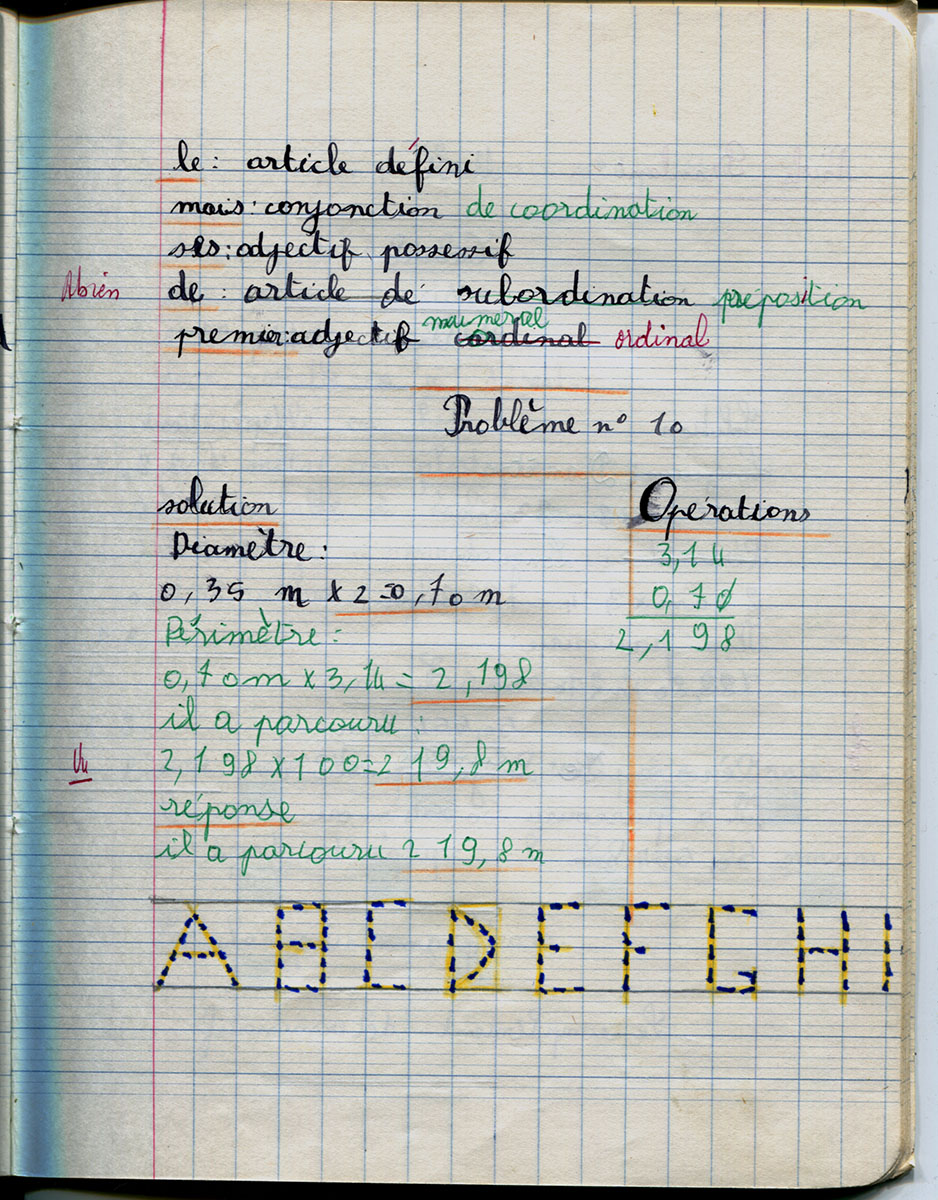 le: article défini
mais: conjonction de coordination
ses: adjectif possessif
Abien de: article de subordination préposition
numeral
premier: adjectif cardinal ordinal
Problème n° 10
solution Opérations
Diamètre: 3,14
0,35 m x 2=0,70m 0,70
Périmètre: 2,198
0,70m x 3,14 = 2,198
il a parcouru:
Vu 2,198 x 100=219,8 m
réponse
il a parcouru 219,8 m
A B C D E F G H I